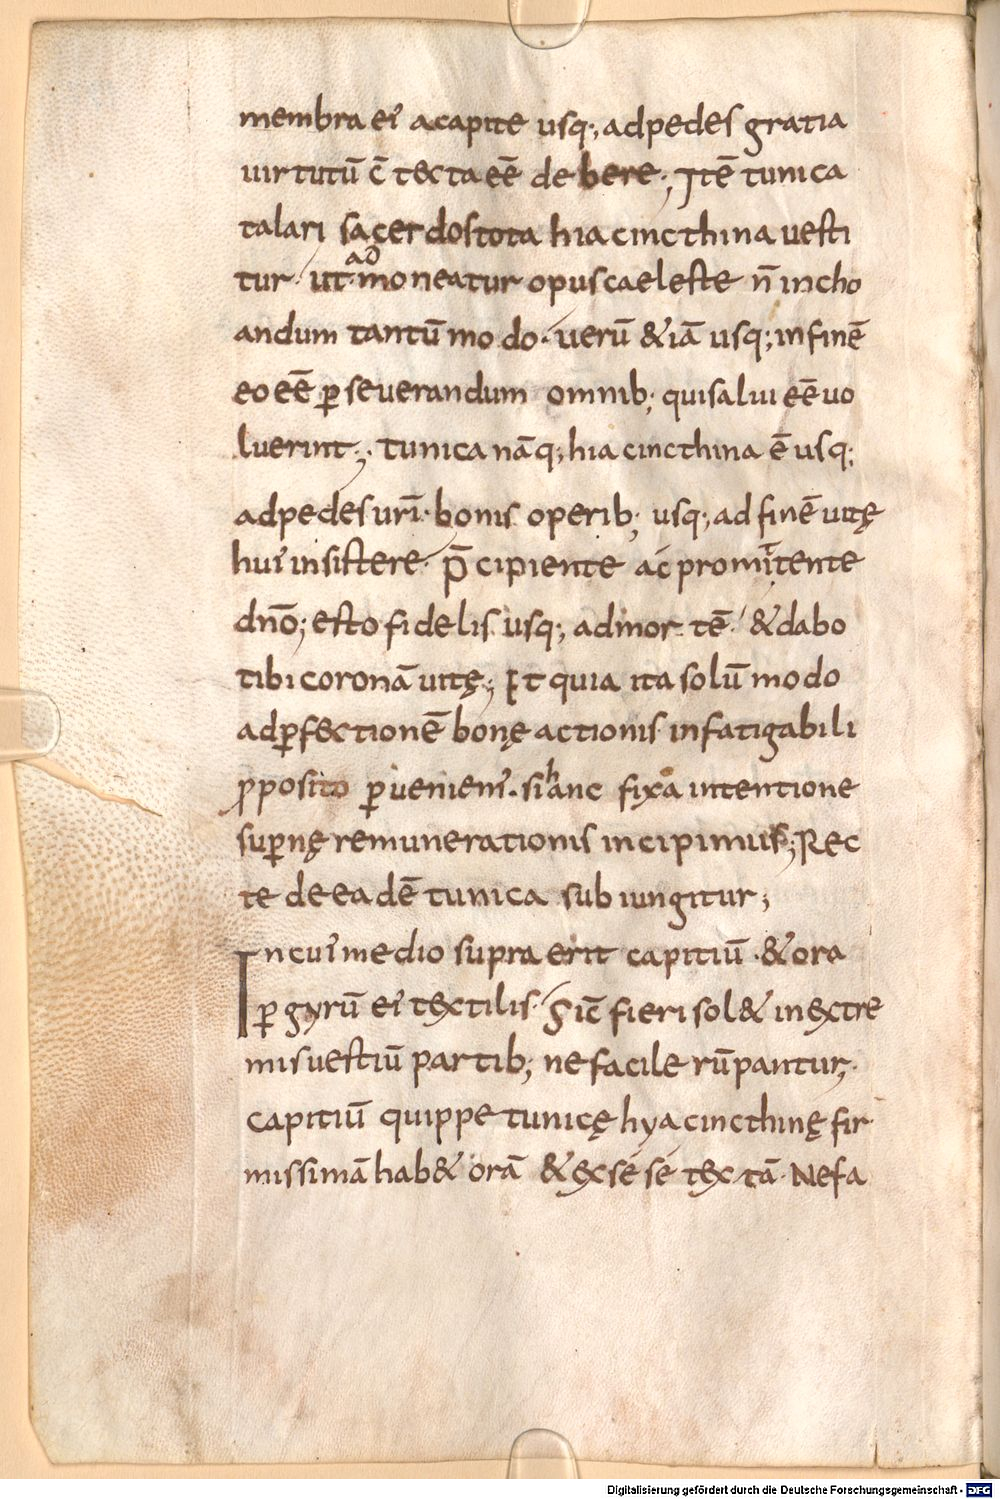 membra ei' a capite usq; ad pedes gratia
uirtutū c̄ tecta eē debere; Itē tunica
talari sacerdos tota hiacincthina uesti
tur. ut admoneatur opus caeleste n̄ incho
andum tantū modo. uerū &iā usq; in finē
eo eē ꝑseuerandum omnib; qui salui eē uo
luerint;. tunica nāq; hiacincthina ē usq;
ad pedes uri̅. bonis operib; usq; ad finē uitę
hui' insistere. p̄cipiente ac promittente
dn̄o; esto fidelis usq; ad mortē. & dabo
tibi coronā uitę; Et quia ita solū modo
ad ꝑfectionē bonę actionis infatigabili
ꝓposito ꝑueniem'. si hanc fixa intentione
suꝑnę remunerationis incipimus; Rec
te de eadē tunica subiungitur;
In cui' medio supra erit capitiū. & ora
ꝑ gyrū ei' textilis. Sic̄ fieri sol& in extre
mis uestiū partib; ne facile rūpantur;.
capitiū quippe tunicę hyacincthinę fir
missimā hab& orā & ex sé sé textā. Ne fa
Digitalisierung gefördert durch die Deutsche Forschungsgemeinschaft - DFG